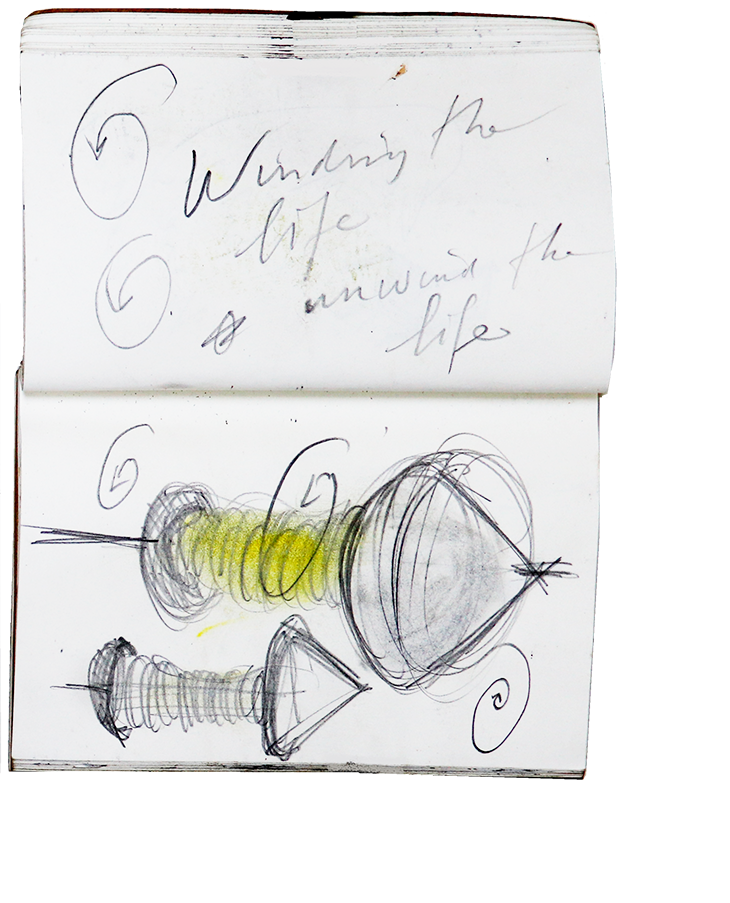 Winding the
life
unwind the
life